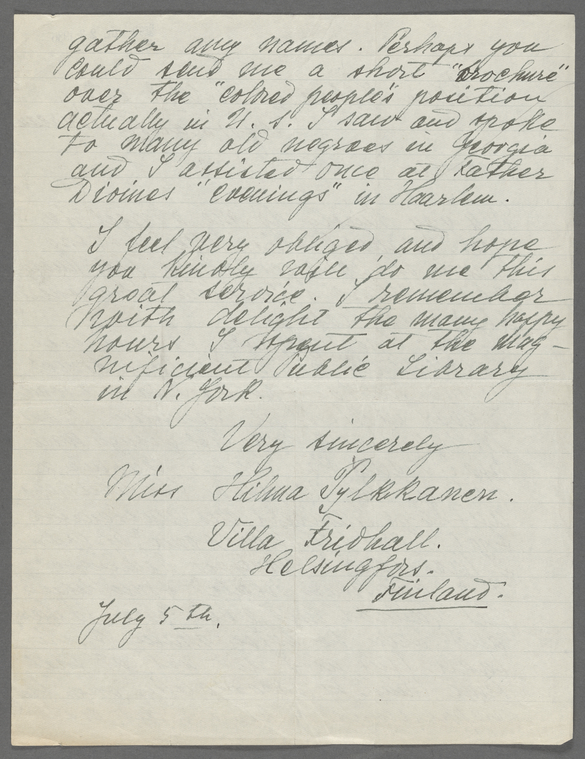 gather any names. Perhaps you
could send me a short "brochure"
over the "colored people's position
actually in U. S. I saw and spoke
to many old negroes in Georgia
and I assisted once at Father
Divines "evenings" in Haarlem.
I feel very obliged and hope
you kindly will do me this
great service. I remember
with delight the many happy
hours I spent at the mag-
nificient Public Library
in N. York.
Very sincerely
Miss Hilma Pylkkänen.
Villa Fridhall.
Helsingfors.
Finland.
July 5th.